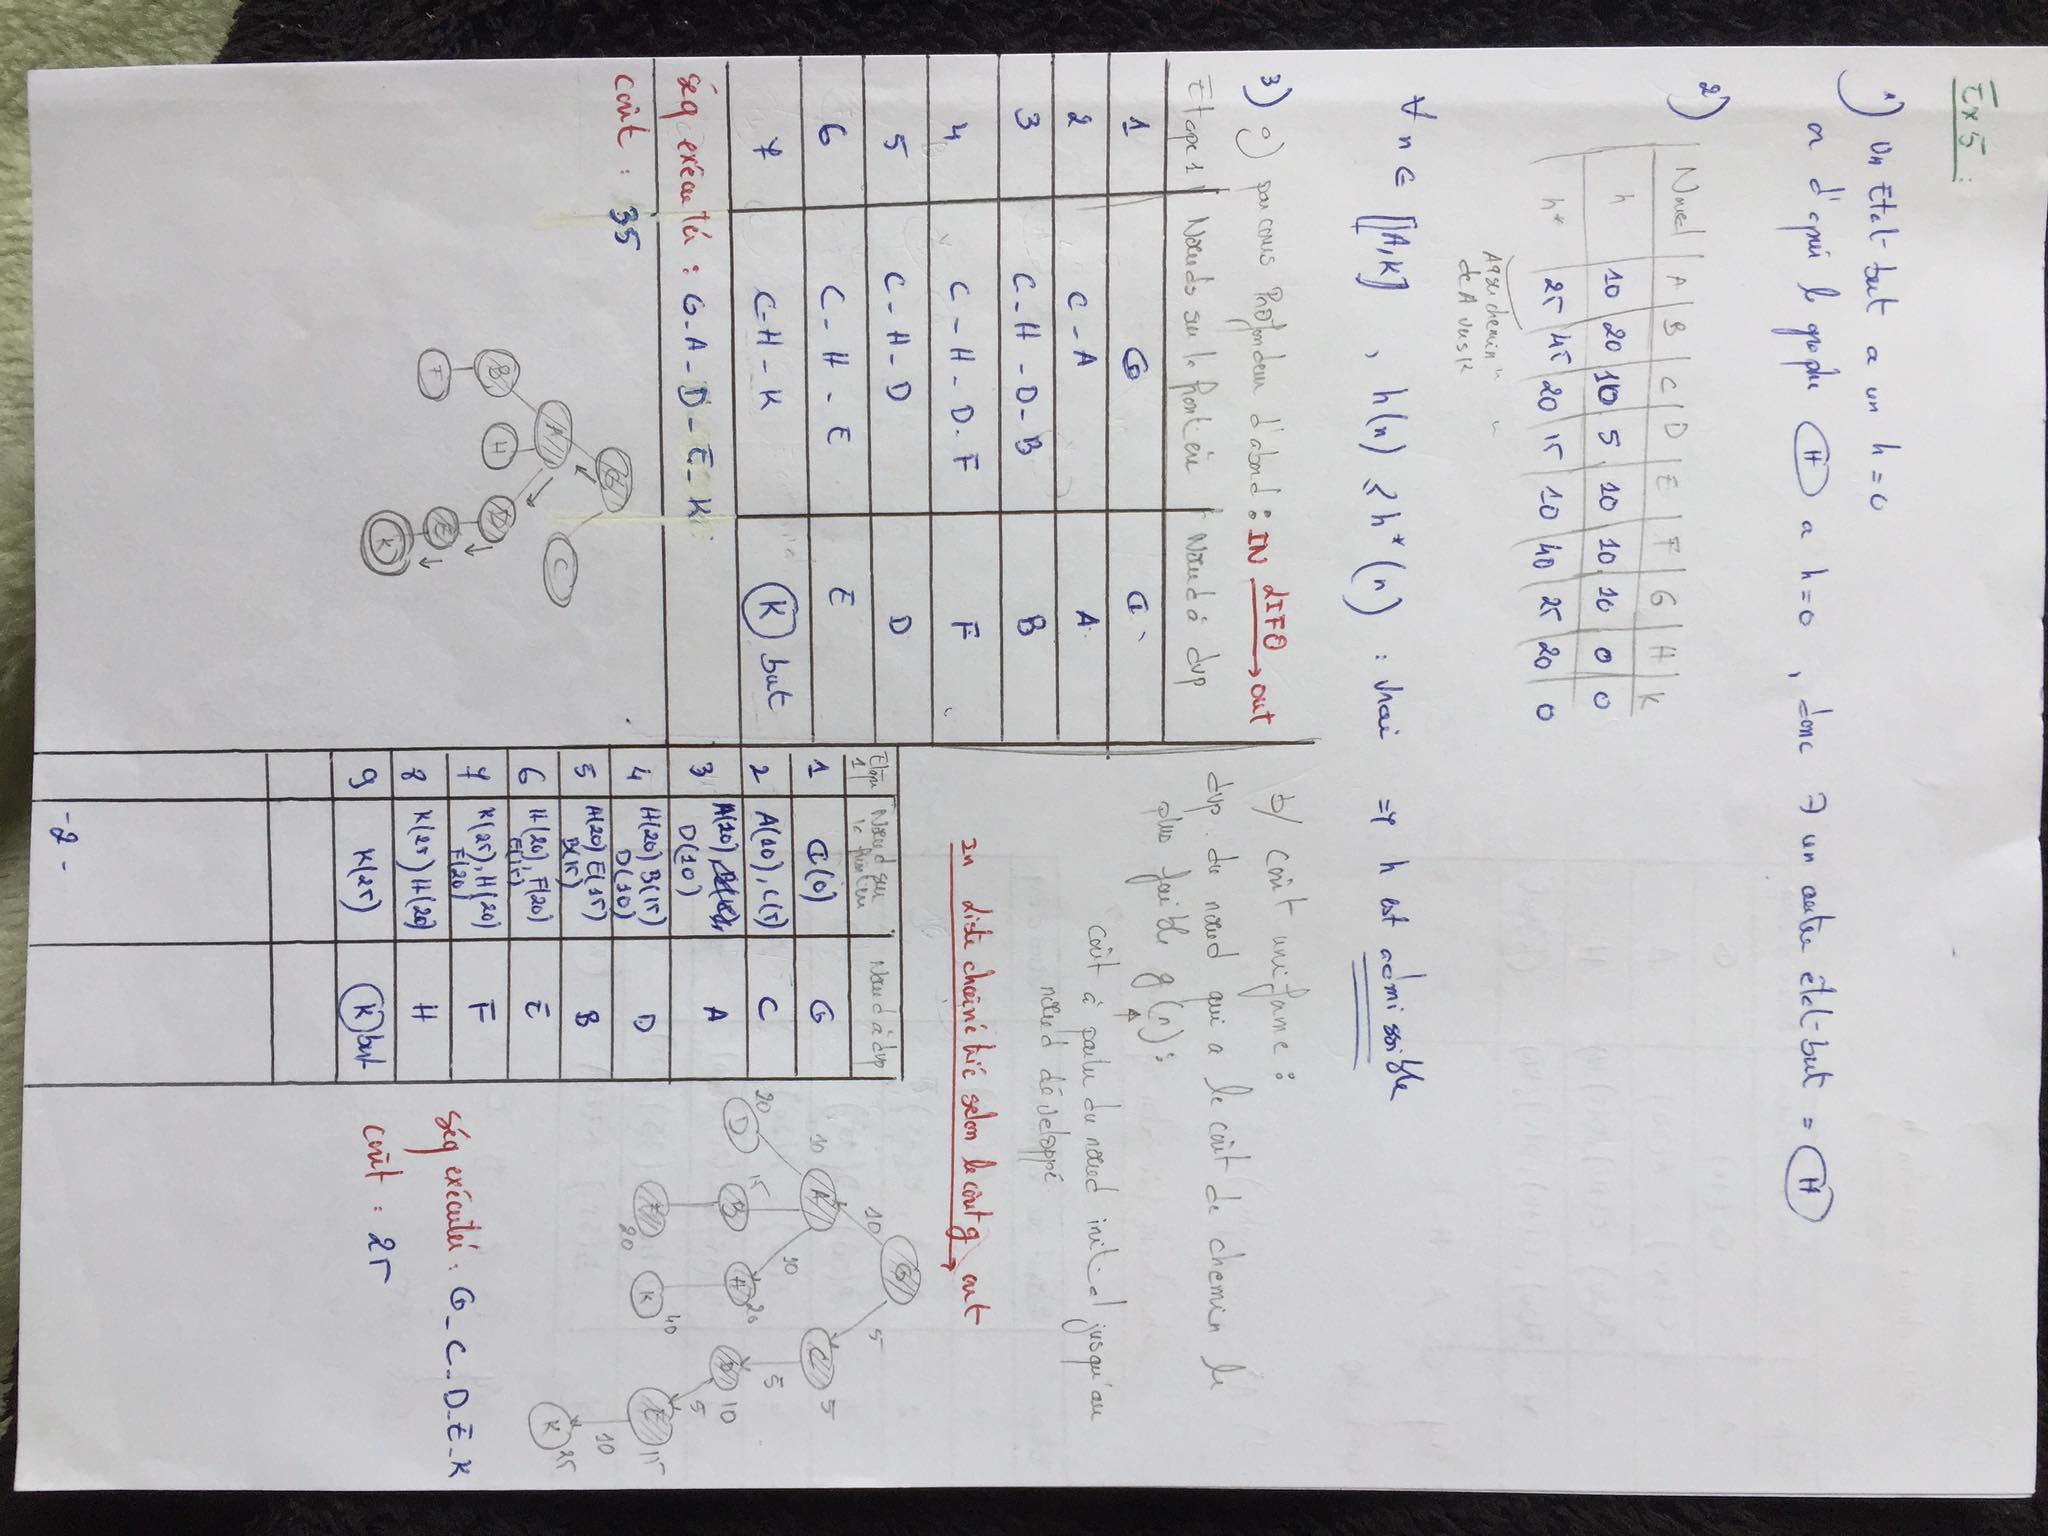 Ex 5 :
1) Un Etat-but a un h = 0
on d'après le graphe H a h=0 , donc ∃ un autre état-but = H
2)
Noeud | A | B | C | D | E | F | G | H | K
h | 10 | 20 | 10 | 5 | 10 | 10 | 20 | 0 | 0
h* | 25 | 45 | 20 | 15 | 10 | 40 | 25 | 20 | 0
de A vers K
∀ n ∈ [[A,K]] , h(n) ≤ h*(n) : vrai => h est admissible
3) a) parcours Profondeur d'abord : IN LIFO out
Etape 1 | Noeuds sur le frontière | Noeud à dvp
1 | G | G
2 | C - A | A
3 | C - H - D - B | B
4 | C - H - D - F | F
5 | C - H - D | D
6 | C - H - E | E
7 | C - H - K | K but
séq exécutée : G - A - D - E - K
coût : 35
G
A C
B H D
F E
K
b) coût uniforme :
dvp. du noeud qui a le coût de chemin le
plus faible g(n) :
coût à partir du noeud initial jusqu'au
noeud développé
In liste chaîné trié selon le coût g out
Etape 1 | Noeud sur le frontière | Noeud à dvp
1 | G(0) | G
2 | A(10), C(5) | C
3 | A(10) D(10) | A
4 | H(20) B(15) D(10) | D
5 | H(20) E(15) B(15) | B
6 | H(20), F(20) E(15) | E
7 | K(25), H(20) F(20) | F
8 | K(25) H(20) | H
9 | K(25) | K but
G
10 5
10 A C 5
20 D 15 B 10 H 20 5 D 10
F 20 K 40 5 E 15
10
K 25
séq exécutée : G - C - D - E - K
coût : 25
- 2 -